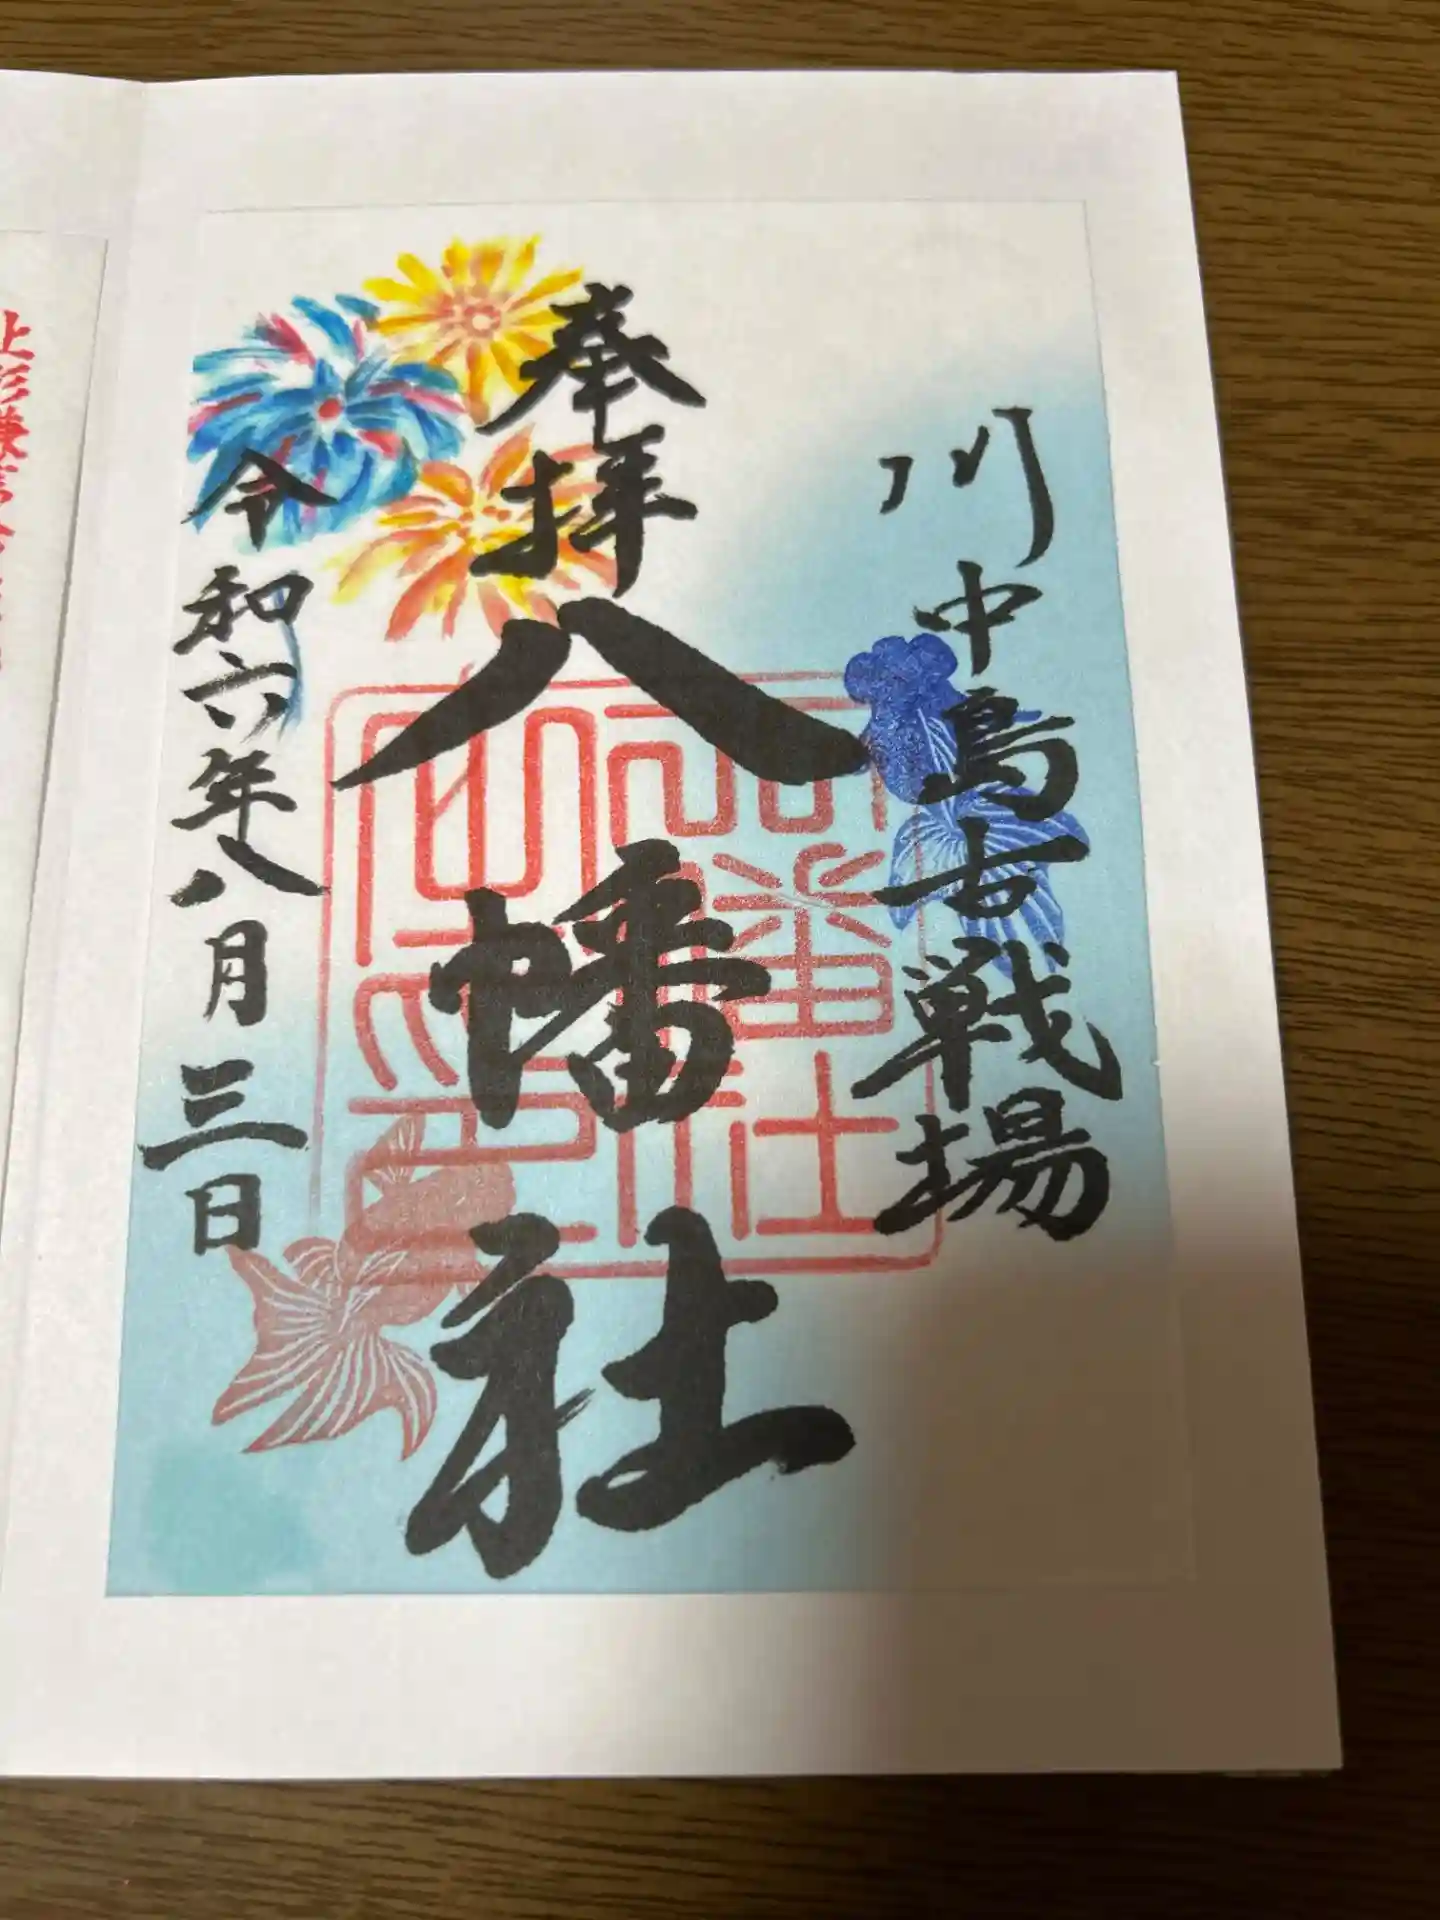 川中島古戦場
奉拝
八幡社
令和六年八月三日
上杉謙信